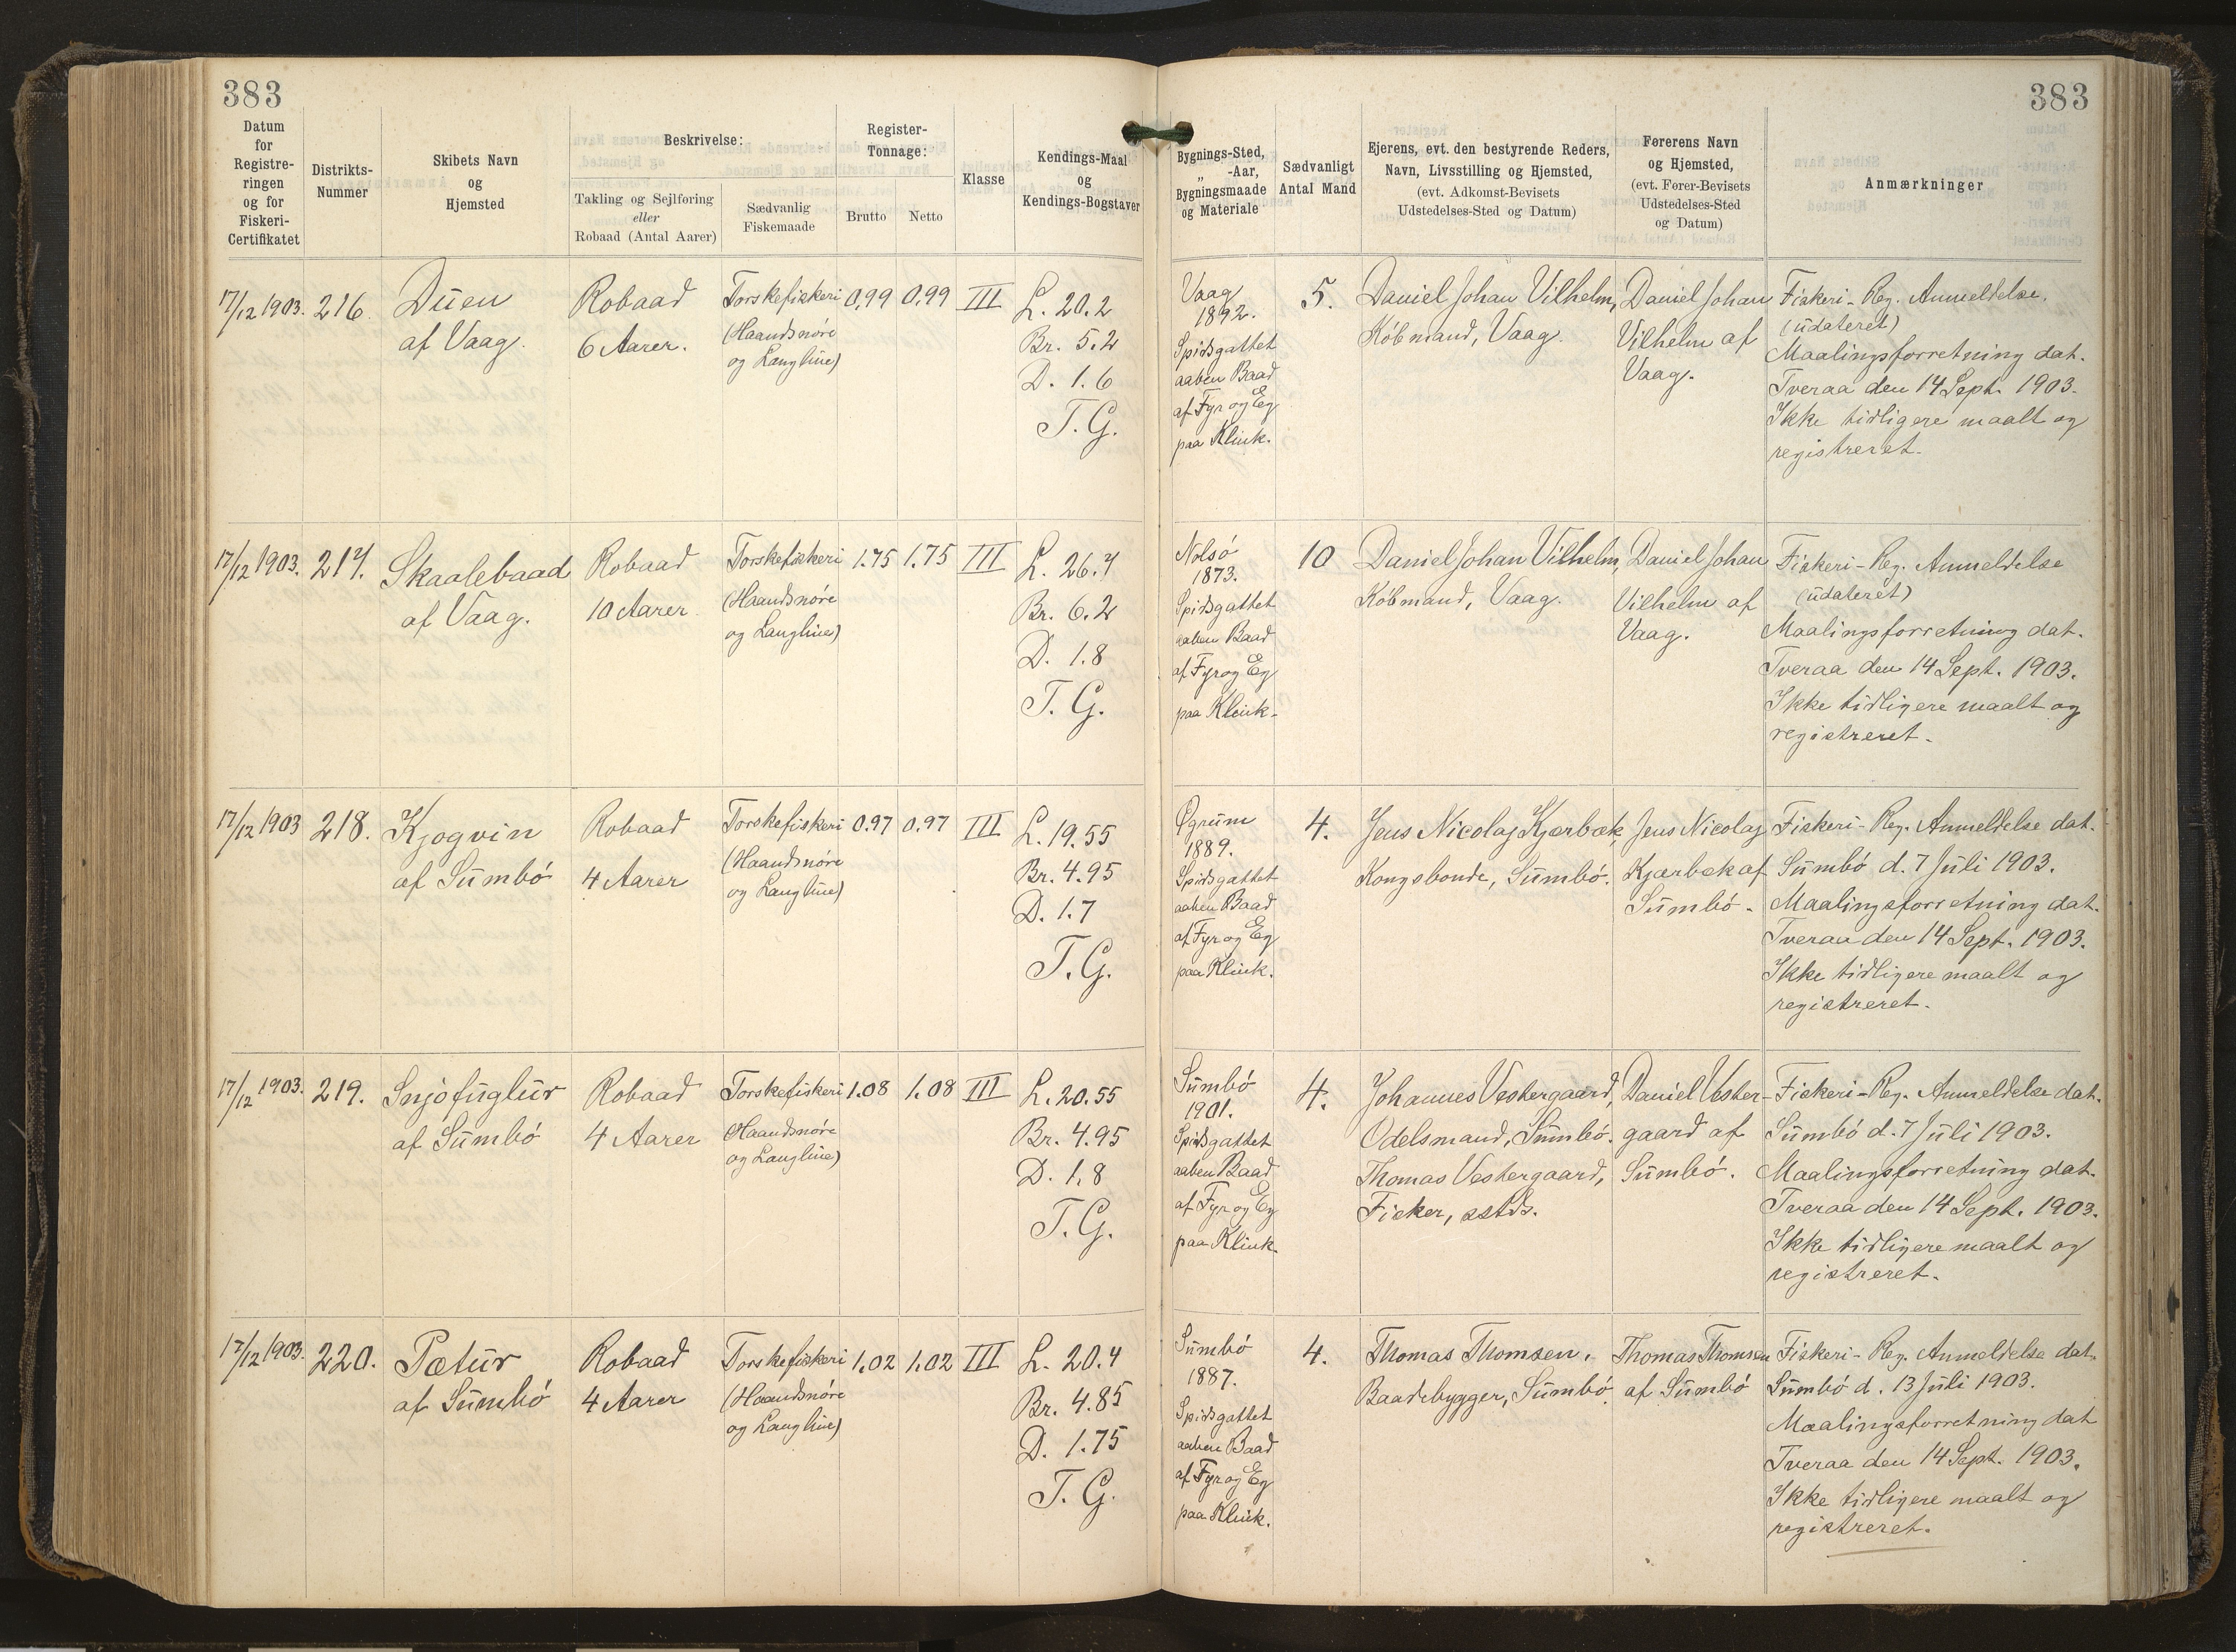 383
383
Datum
for
Registre-
ringen
og for
Fiskeri-
Certifikatet
Distrikts-
Nummer
Skibets Navn
og
Hjemsted
Beskrivelse:
Takling og Sejlføring
eller
Robaad (Antal Aarer)
Sædvanlig
Fiskemaade
Register-
Tonnage:
Brutto
Netto
Klasse
Kendings-Maal
og
Kendings-Bogstaver
Bygnings-Sted,
„ -Aar,
Bygningsmaade
og Materiale
Sædvanligt
Antal Mand
Ejerens, evt. den bestyrende Reders,
Navn, Livsstilling og Hjemsted,
(evt. Adkomst-Bevisets
Udstedelses-Sted og Datum)
Førerens Navn
og Hjemsted,
(evt. Fører-Bevisets
Udstedelses-Sted
og Datum)
Anmærkninger
17/12 1903.
216.
Duen
af Vaag.
Robaad
6 Aarer.
Torskefiskeri
(Haandsnøre
og Langline)
0,99
0,99
III
L. 20.2
Br. 5.2
D. 1.6
T. G.
Vaag
1892.
Spidsgattet
aaben Baad
af Fyr og Eg
paa Klink.
5.
Daniel Johan Vilhelm,
Købmand, Vaag.
Daniel Johan
Vilhelm af
Vaag.
Fiskeri-Reg. Anmeldelse.
(udateret)
Maalingsforretning dat.
Tveraa den 14 Sept. 1903.
Ikke tidligere maalt og
registreret.
17/12 1903.
217.
Skaalebaad
af Vaag.
Robaad
10 Aarer
Torskefiskeri
(Haandsnøre
og Langline)
1.75
1.75
III
L. 26.7
Br. 6.2
D. 1.8
T. G.
Nolsó
1873.
Spidsgattet
aaben Baad
af Fyr og Eg
paa Klink.
10
Daniel Johan Vilhelm,
Købmand, Vaag.
Daniel Johan
Vilhelm af
Vaag.
Fiskeri-Reg. Anmeldelse
(udateret)
Maalingsforretning dat.
Tveraa den 14 Sept. 1903.
Ikke tidligere maalt og
registreret.
17/12 1903
218.
Kjogvin
af Sumbó
Robaad
4 Aarer
Torskefiskeri
(Haandsnøre
og Langline)
0.97
0.97
III
L. 19.55
Br. 4.95
D. 1.7
T. G.
Øgrum
1889.
Spidsgattet
aaben Baad
af Fyr og Eg
paa Klink.
4.
Jens Nicolaj Kjærbæk,
Kongsbonde, Sumbó.
Jens Nicolaj
Kjærbæk af
Sumbó.
Fiskeri-Reg. Anmeldelse dat.
Sumbó d. 7 Juli 1903.
Maalingsforretning dat.
Tveraa den 14 Sept. 1903.
Ikke tidligere maalt og
registreret.
17/12 1903.
219.
Snjofuglur
af Sumbó
Robaad
4 Aarer
Torskefiskeri
(Haandsnøre
og Langline)
1.08
1.08
III
L. 20.55
Br. 4.95
D. 1.8
T. G.
Sumbó
1901.
Spidsgattet
aaben Baad
af Fyr og Eg
paa Klink.
4.
Johannes Vestergaard,
Odelsmand, Sumbó.
Thomas Vestergaard,
Fisker, sstds.
Daniel Vester-
gaard af
Sumbó.
Fiskeri-Reg. Anmeldelse dat.
Sumbó d. 7 Juli 1903.
Maalingsforretning dat.
Tveraa den 14 Sept. 1903.
Ikke tidligere maalt og
registreret.
17/12 1903.
220.
Pætur
af Sumbó
Robaad
4 Aarer
Torskefiskeri
(Haandsnøre
og Langline)
1,02
1,02
III
L. 20.4
Br. 4.85
D. 1.75
T. G.
Sumbó
1887.
Spidsgattet
aaben Baad
af Fyr og Eg
paa Klink.
4.
Thomas Thomsen.
Baadebygger, Sumbó.
Thomas Thomsen
af Sumbó
Fiskeri-Reg. Anmeldelse dat.
Sumbó d. 13 Juli 1903.
Maalingsforretning dat
Tveraa den 14 Sept. 1903.
Ikke tidligere maalt og
registreret.